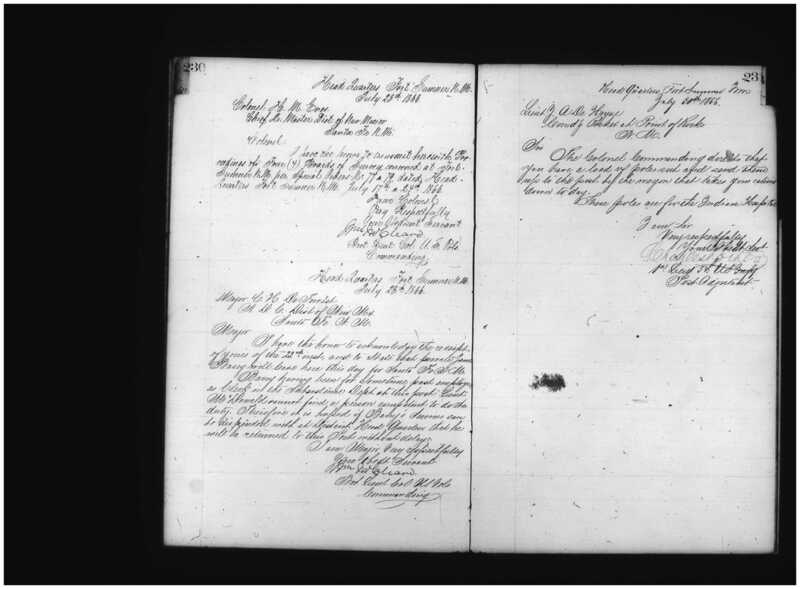 230
Head Quarters Fort Sumner N.M.
July 28th 1866
Colonel H. M. Enos
Chief Qr. Master Dist of New Mexico
Santa Fe N.M.
Colonel
I have the honor to transmit herewith Pro
ceedings of Four (4) Boards of Survey convened at Fort
Sumner N.M. per Special Orders No 77 & 79 dated Head
Quarters Fort Sumner N.M. July 17th & 24th 1866
I am Colonel
Very Respectfully
Your Obedient Servant
Bvt Lieut Col. U.S. Vols
Commanding
Head Quarters Fort Sumner N.M.
July 28th 1866
Major C. H. De Forrest
A. D. C. Dist of New Mex
Santa Fe N.M.
Major
I have the honor to acknowledge the receipt
of yours of the 22nd inst, and to state that private
Barry will leave here this day for Santa Fe N.M.
Barry having been for sometime past employed
as Clerk in the Subsistence Dept at this post Lieut
McDonald cannot find a person competent to do the
duty. Therefore it is hoped if Barry's Services can
be dispensed with at District Head Quarters that he
will be returned to this Post without delay
I am Major Very respectfully
Your Obdt Servant
Bvt Lieut Col US Vols
Commanding
23
Head Quarters, Fort Sumner N.M.
July 30th 1866.
Lieut
Comdg Picket at Point of Rocks
N.M.
Sir
The Colonel Commanding directs that
you have a load of poles cut and send them
into to the post by the wagon that takes your rations
down to day.
These poles are for the Indian Hospital
I am Sir
Very respectfully
Your Obdt Svt
1st Lieut 5th US Infty
Post Adjutant